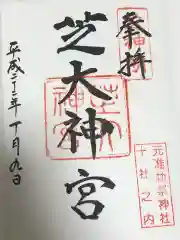 奉拝
芝大神宮
平成二十二年十月九日
元准勅祭神社
十社之内